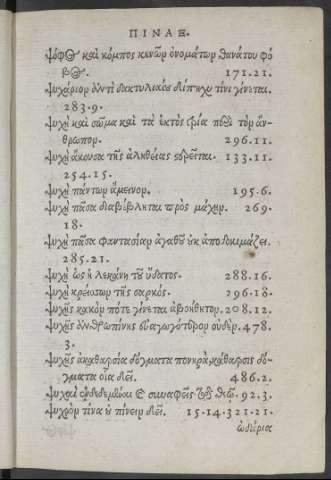 ΠΙΝΑΞ.
ψόφος καὶ κόμπος κενῶν ὀνομάτων θανάτου φό
βος. 171.21.
ψυχάριον τίνι γίνεται.
283.9.
ψυχὴ καὶ σῶμα καὶ τὰ ἐκτὸς τρία περὶ τὸν ἄν-
θρωπον. 296.11.
ψυχὴ ἄκουσα τῆς ἀληθείας στέρεται. 133.11.
254.15.
ψυχὴ πάντων ἄμεινον. 195.6.
ψυχὴ πᾶσα διαβέβληται πρὸς μάχην. 269.
18.
ψυχὴ πᾶσα φαντασίαν ἀγαθοῦ οὐκ ἀποδοκιμάζει.
285.21.
ψυχὴ ὡς ἡ λεκάνη τοῦ ὕδατος. 288.16.
ψυχὴ κρείσσων τῆς σαρκός. 296.18.
ψυχῆς κακὸν πότε γίνεται ἀβοήθητον. 208.12.
ψυχῆς ἀνθρωπίνης εὐαγωγότερον οὐδέν. 478.
3.
ψυχῆς ἀκαθαρσία δόγματα πονηρὰ, κάθαρσις δό-
γματα οἷα δεῖ. 486.2.
ψυχαὶ ἐνδεδεμέναι καὶ συναφεῖς τῷ θεῷ. 92.3.
ψυχρὸν τίνα οὐ πίνειν δεῖ. 15.14.321.21.
ᾠδάρια